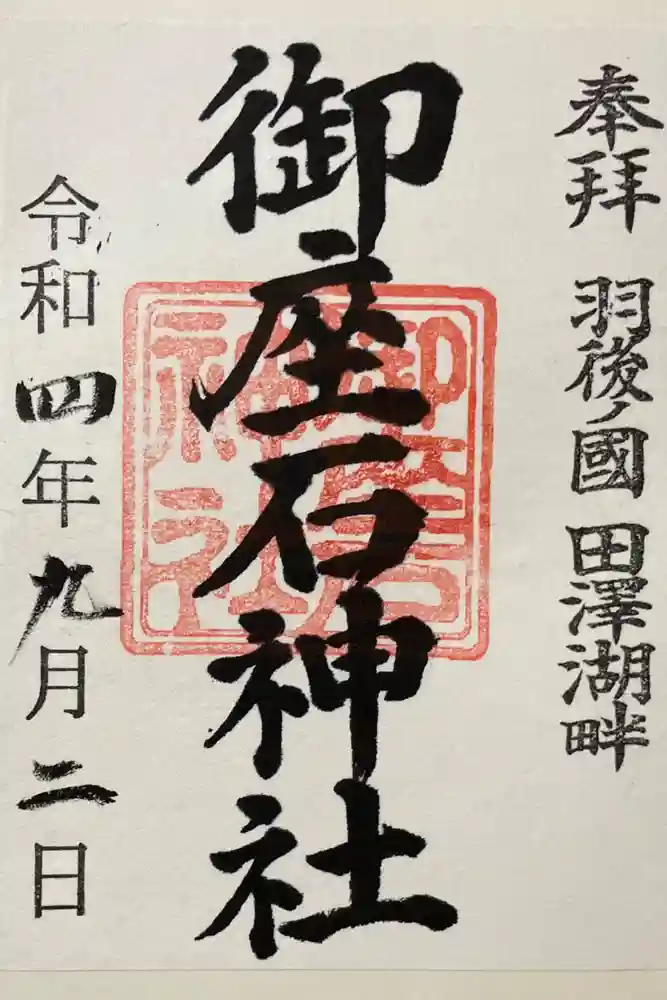 奉拝 羽後ノ國 田澤湖畔
御座石神社
御座石
神社
令和四年九月二日